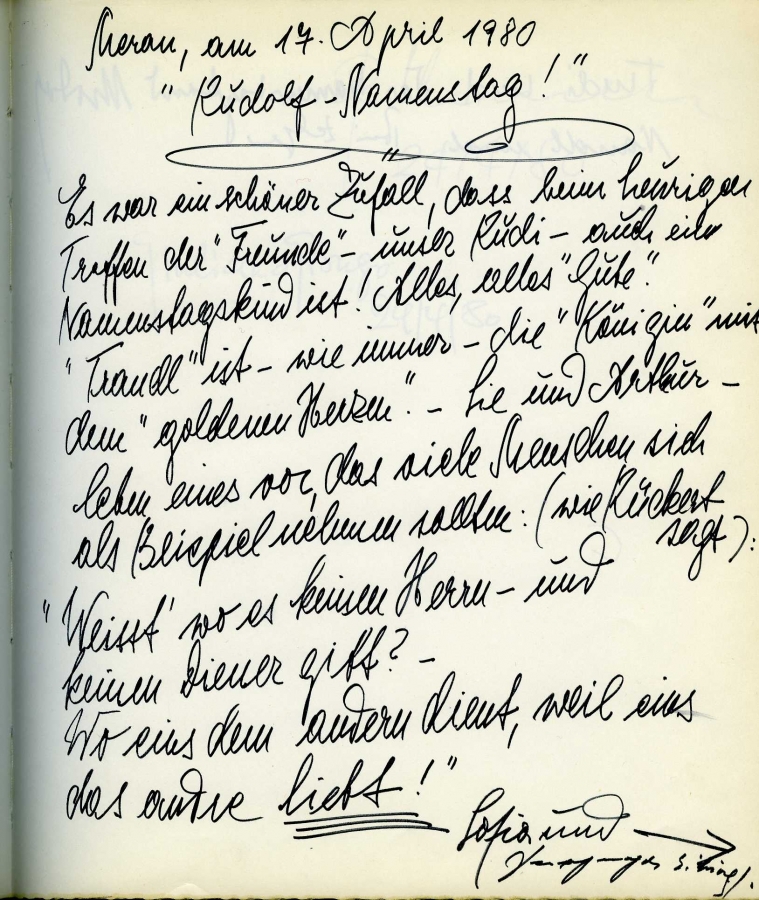 Meran, am 17. April 1980
"Rudolf-Namenstag!"
Es war ein schöner Zufall, dass beim heurigen
Treffen der "Freunde" - unser Rudi - auch ein
Namenstagskind ist! Alles, alles "Gute".
"Traudl" ist - wie immer - die "Königin" mit
dem "goldenen Herzen". - Sie und Arthur -
leben eines vor, das viele Menschen sich
als Beispiel nehmen sollten: (wie Rückert
sagt):
"Weisst' wo es keinen Herrn - und
keinen Diener gibt? -
Wo eins dem andern dient, weil eins
das andre liebt!"
Sofia und